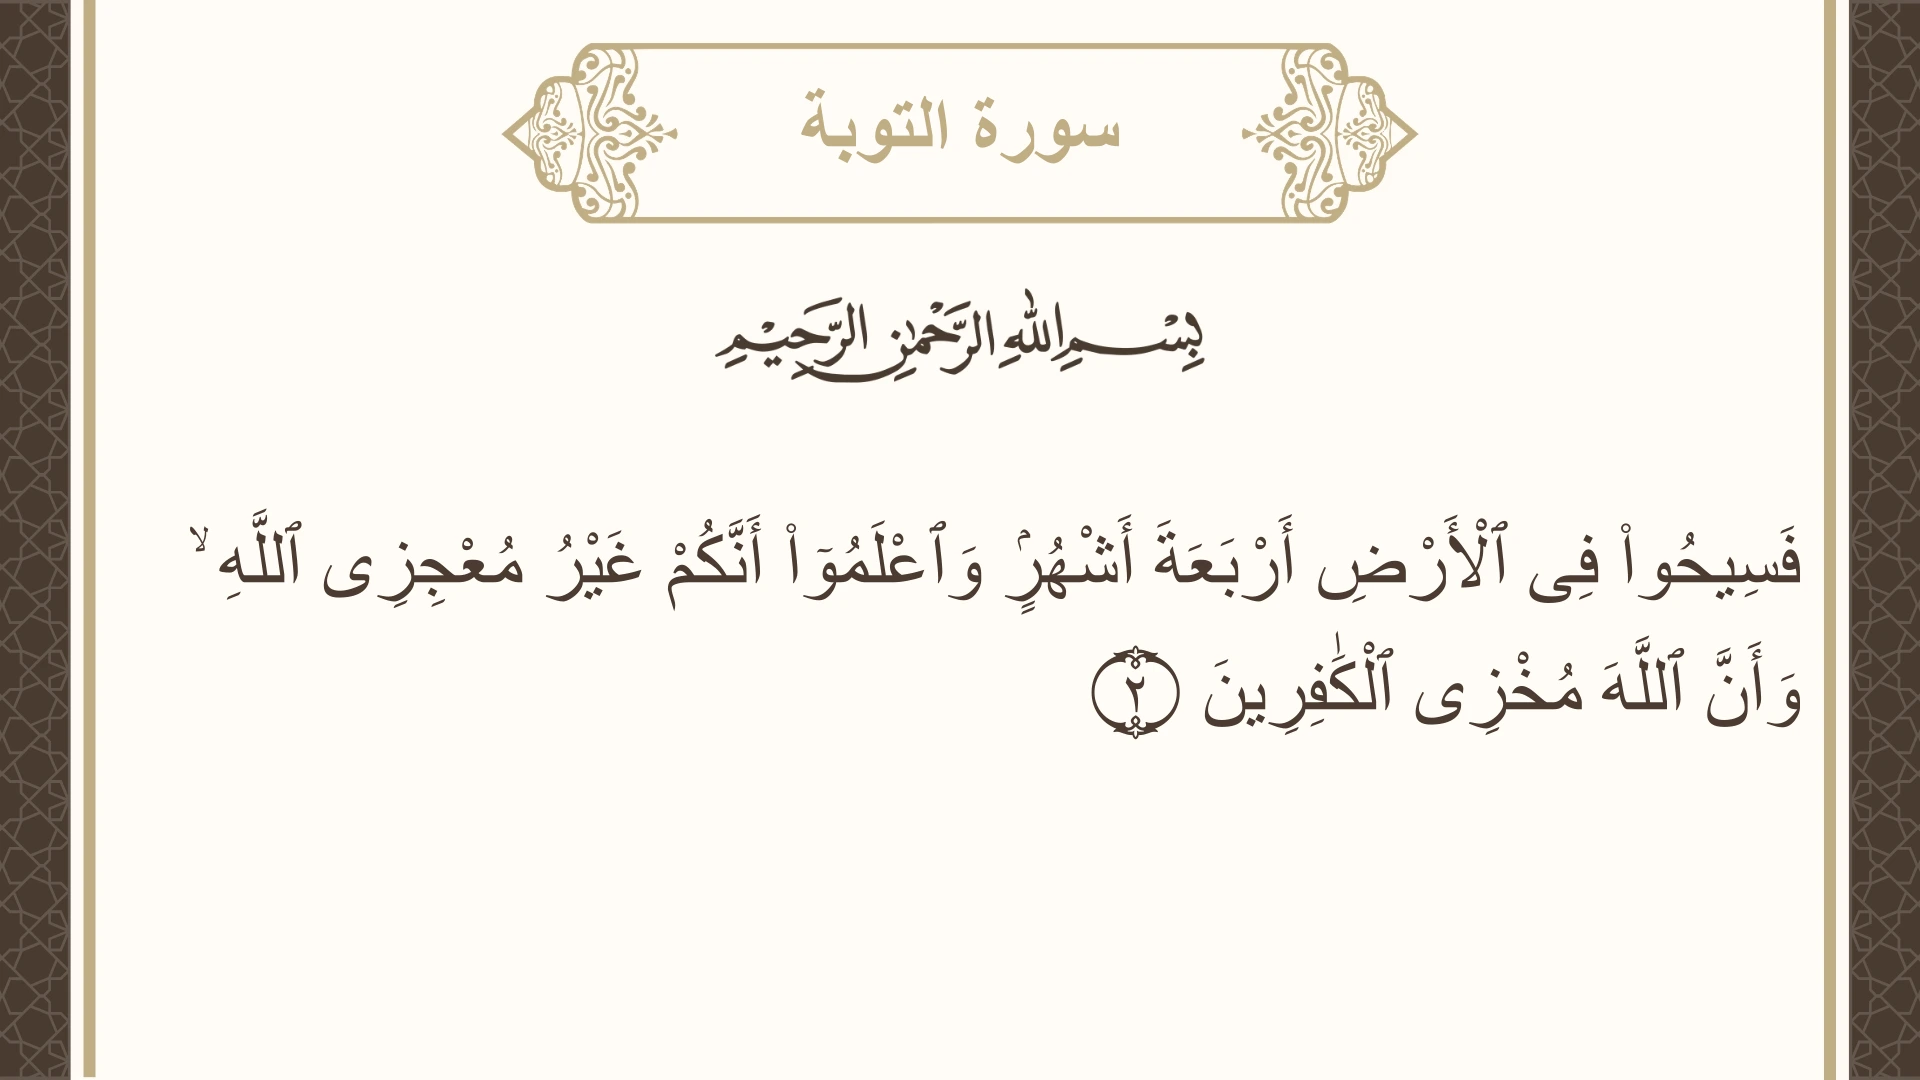 سورة التوبة
بِسْمِ اللهِ الرَّحْمٰنِ الرَّحِيْمِ
فَسِيحُوا۟ فِى ٱلْأَرْضِ أَرْبَعَةَ أَشْهُرٍۢ وَٱعْلَمُوٓا۟ أَنَّكُمْ غَيْرُ مُعْجِزِى ٱللَّهِ ۙ
وَأَنَّ ٱللَّهَ مُخْزِى ٱلْكَـٰفِرِينَ ٢